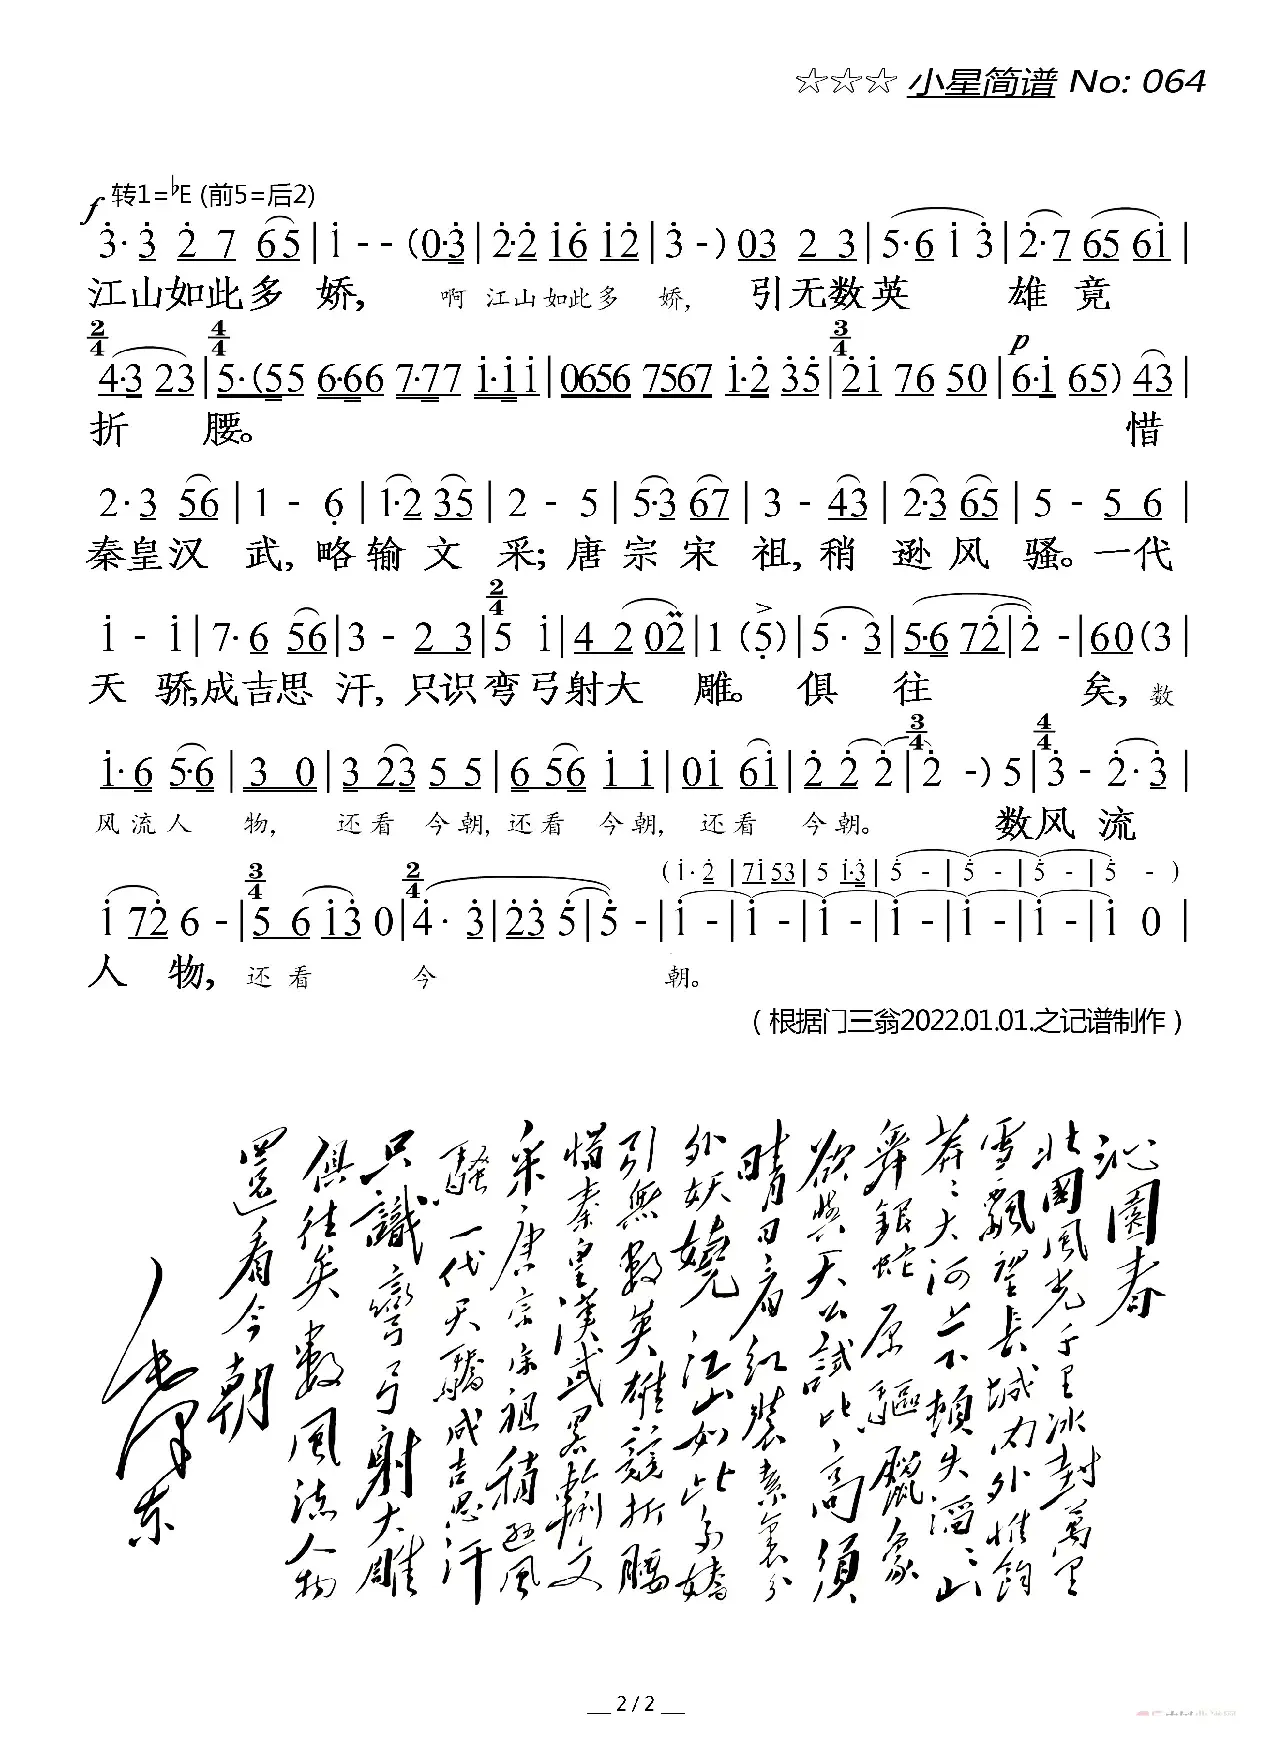 ☆☆☆ 小星简谱 No: 064
转1=♭E (前5=后2)
f
3̇·3̇ 2̇ 7 65|1̇ - - (0·3̇|2̇·2̇ 1̇6 1̇2̇|3̇ -) 03 2 3|5·6 1̇ 3̇|2̇·7 65 61̇|
江山如此多 娇， 啊 江山如此多 娇， 引无数英 雄 竟
2/4 4/4 3/4 p
4·3 23|5·(55 6·66 7·77 1̇·1̇ 1̇|0656 7567 1̇·2̇ 3̇5̇|2̇1̇ 76 50|6·1̇ 65) 43|
折 腰。 惜
2·3 56|1 - 6̣|1·2 35|2 - 5|5·3 67|3 - 43|2·3 65|5 - 5 6|
秦皇汉 武, 略输文 采; 唐宗宋 祖, 稍 逊风 骚。一代
2/4
1̇ - 1̇|7·6 56|3 - 2 3|5 1̇|4 2 02|1 (5̣)|5 · 3|5·6 72̇|2̇ -|60(3|
天 骄,成吉思 汗, 只识弯弓射大 雕。 俱 往 矣, 数
3/4 4/4
1̇·6 5·6|3 0|3 23 5 5|6 56 1̇ 1̇|01̇ 61̇|2̇ 2̇ 2̇|2̇ -) 5|3̇ - 2̇·3̇|
风流人 物, 还看 今朝, 还看 今朝, 还看 今朝。 数风 流
(1̇·2̇|71̇53|5 1̇·3̇|5̇ -|5̇ -|5̇ -|5̇ -)
3/4 2/4
1̇ 72̇ 6 -|5 6 1̇3̇ 0|4̇· 3̇|2̇3̇ 5̇|5̇ -|1̇ -|1̇ -|1̇ -|1̇ -|1̇ -|1̇ -|1̇ 0|
人 物, 还看 今 朝。
（根据门三翁2022.01.01.之记谱制作）
沁園春
北國風光千里冰封萬里
雪飄望長城内外惟餘
莽＝大河上下頓失滔＝山
舞銀蛇原驅臘象
欲與天公試比高須
晴日看紅裝素裹分
外妖嬈江山如此多嬌
引無數英雄競折腰
惜秦皇漢武略輸文
采唐宗宋祖稍遜風
騷一代天驕成吉思汗
只識彎弓射大雕
俱往矣數風流人物
還看今朝
毛澤東
2 / 2